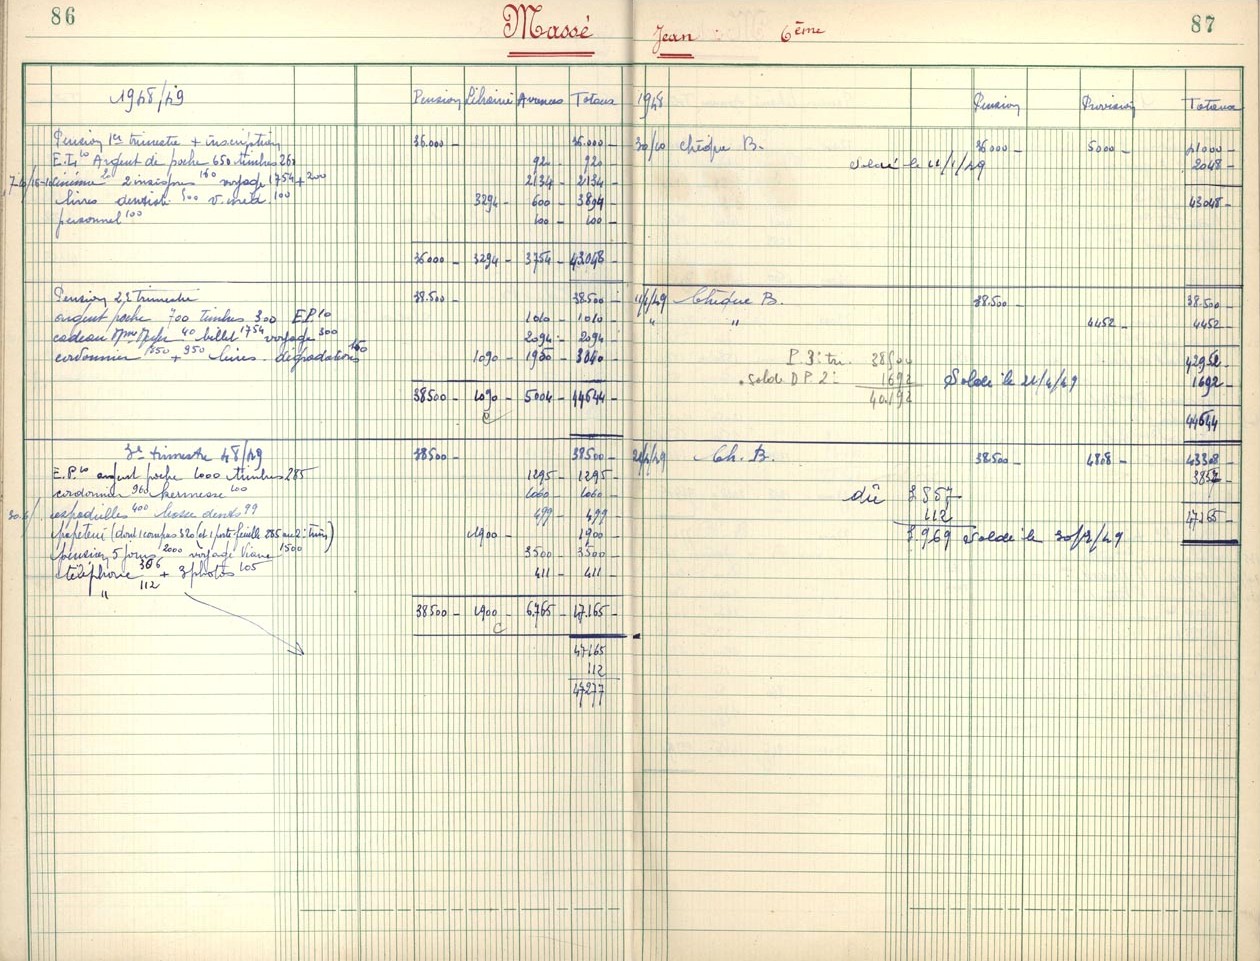 86
Massé Jean 6ème
87
1948/49 Pension Librairie Avances Totaux
Pension 1er trimestre + inscription 36.000 36.000 -
E.I. 10 Argent de poche 650 timbres 260 920 - 920 -
cinéma 20 2 insignes 160 voyage 1754 + 200 2134 - 2134 -
livres dentist. 500 v. méd. 100 3294 600 - 3894
personnel 100 100 - 100 -
36000 - 3294 - 3754 - 43048 -
Pension 2e trimestre 38.500 - 38.500 -
argent poche 700 timbres 300 E.P. 10 1010 - 1010 -
cadeau 40 billet 1754 voyage 300 2094 - 2094 -
cordonnier + 950 livres. dégradations 1090 - 1900 -
38500 - 1090 - 5004 - 44644 -
3e trimestre 48/49 38500 - 38500 -
E.P. 10 argent poche 1000 timbres 285 1295 - 1295 -
cordonnier 960 kermesse 100 1060 - 1060 -
espadrilles 400 brosse dents 99 499 - 499 -
papeterie (dont 1 compas 320 (et 1 porte-feuille 285 au 2e trim.) 1900 - 1900 -
pension 5 jours 2000 voyage 1500 3500 - 3500 -
téléphone 306 + 3 photos 105 411 - 411 -
" 112
38500 - 1900 - 6.765 - 47.165 -
47165
112
47277
1948 Pension Provision Totaux
30/10 Chèque B. 36000 - 5000 - 41000 -
Soldé le 11/1/49 2048 -
43048 -
11/1/49 Chèque B. 38.500 - 38.500 -
" " 4452 - 4452 -
P. 3e tri. 38500 42952 -
Solde D P 2e 1692 Soldé le 21/4/49 1692 -
40.192
44644
21/4/49 Ch. B. 38500 - 4808 - 43308 -
3857 -
dû 3857
112 47165 -
3.969 Soldé le 30/7/49